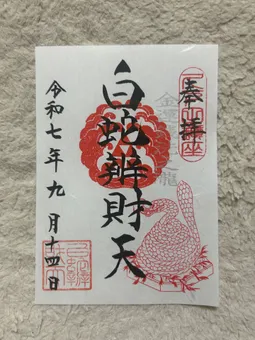 奉拝
白蛇辨財天
令和七年九月十四日